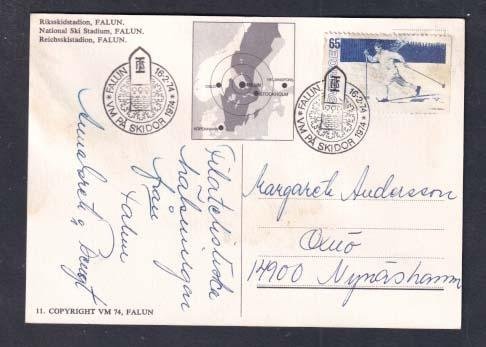 Riksskidstadion, FALUN.
National Ski Stadium, FALUN.
Reichsskistadion, FALUN.
FALUN 16·2·74
VM PÅ SKIDOR 1974
OSLO
HELSINGFORS
FALUN
STOCKHOLM
KÖPENHAMN
65
FALUN 16·2·74
VM PÅ SKIDOR 1974
Filatelistiska
hälsningar
från
Falun
Annabreta & Bengt
Margareth Andersson
Oxnö
14900 Nynäshamn
11. COPYRIGHT VM 74, FALUN